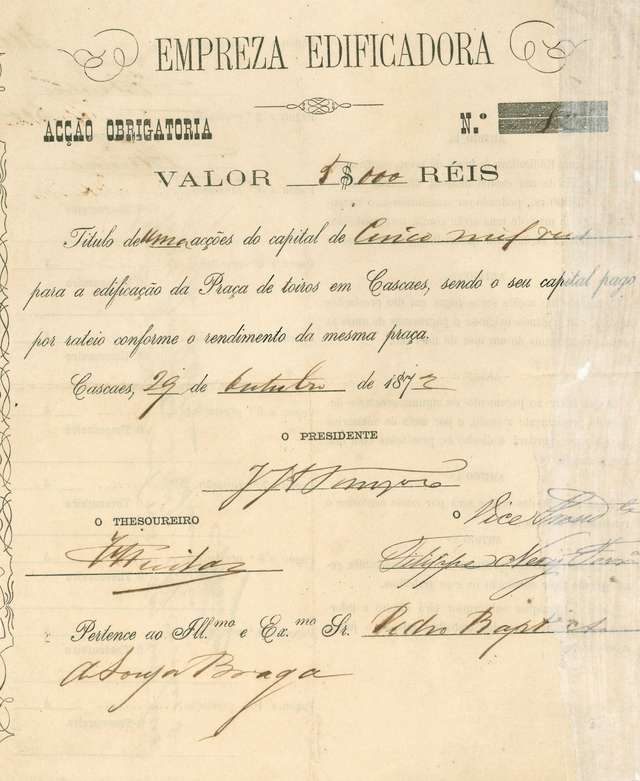 EMPREZA EDIFICADORA
ACÇÃO OBRIGATORIA N.º
VALOR 5$000 RÉIS
Titulo de uma acções do capital de Cinco mil reis
para a edificação da Praça de toiros em Cascaes, sendo o seu capital pago
por rateio conforme o rendimento da mesma praça.
Cascaes, 29 de Outubro de 1872
O PRESIDENTE
O THESOUREIRO
O Vice Presid
Filippe Nery
Pertence ao Ill.mo e Ex.mo Sr. Pedro Baptista
de Souza Braga